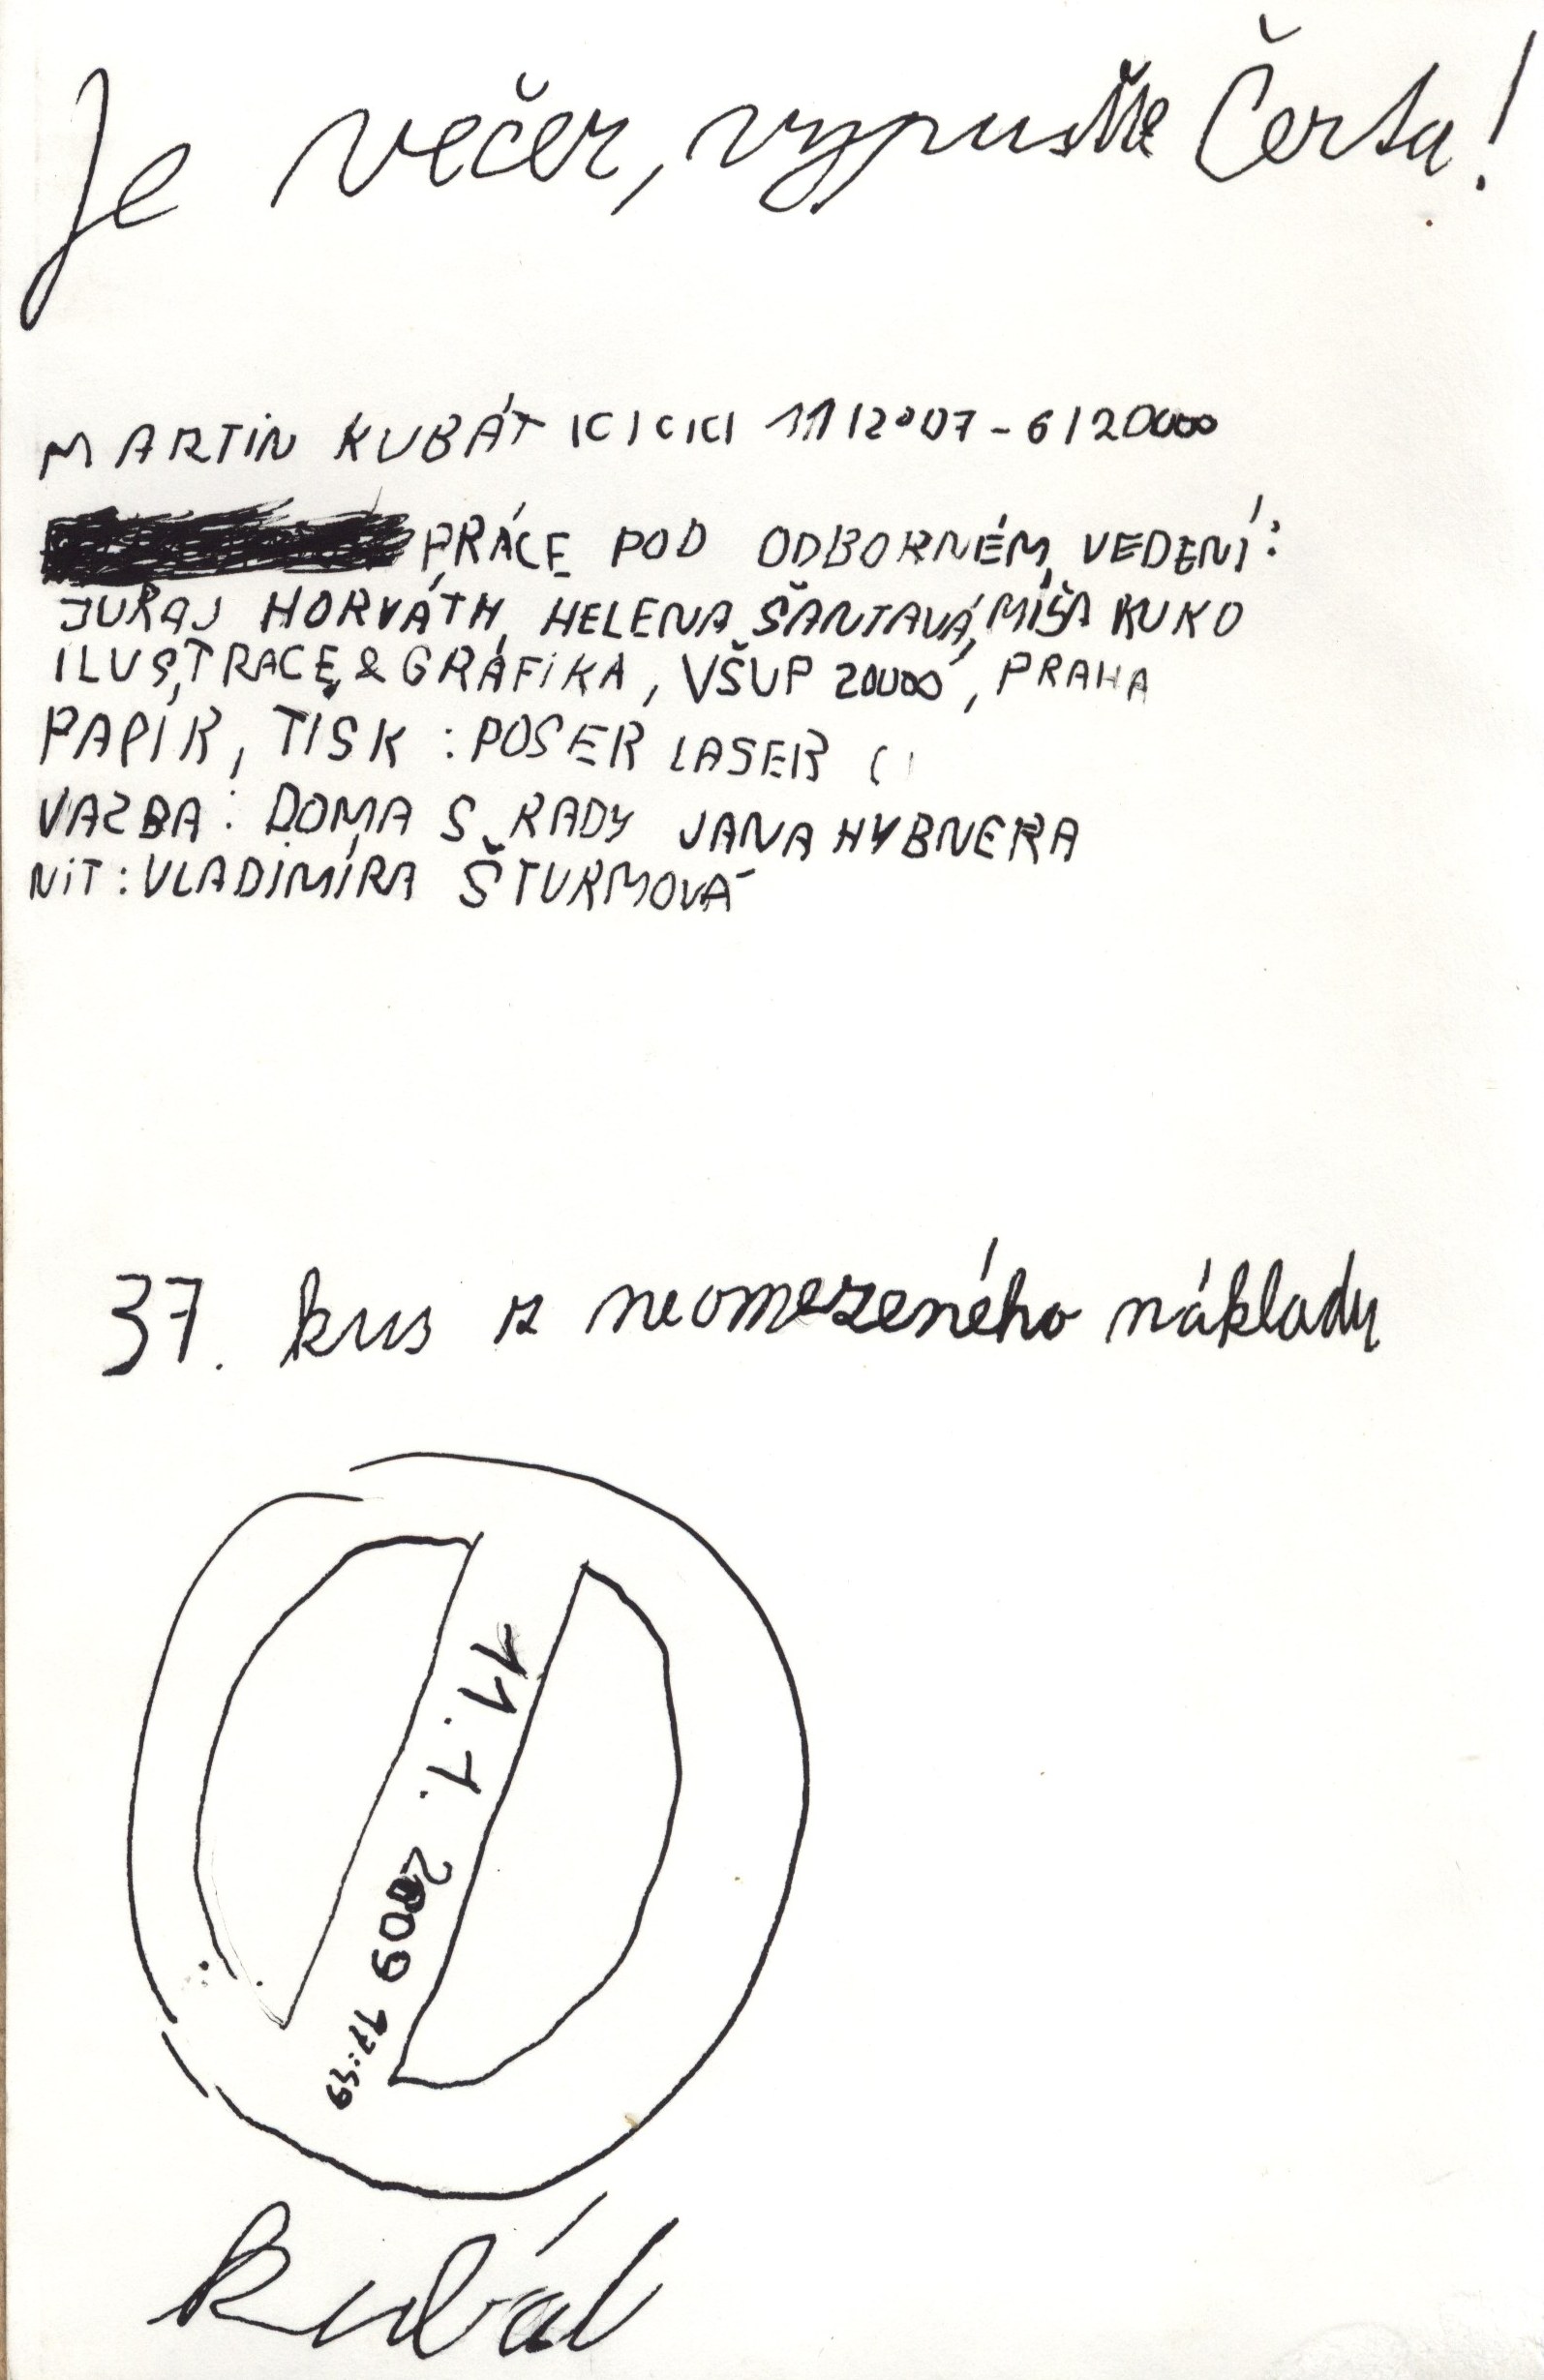 Je večer, vypusťte Čerta!
MARTIN KUBÁT 11/2007 - 6/20008
PRÁCE POD ODBORNÉM VEDENÍ:
JURAJ HORVÁTH, HELENA ŠANTAVÁ, MÍŠA KUKO
ILUSTRACE & GRAFIKA, VŠUP 20008, PRAHA
PAPÍR, TISK : POSER LASER
VAZBA : DOMA S RADY JANA HYBNERA
NIT : VLADIMÍRA ŠTURMOVÁ
37. kus z neomezeného nákladu
11. 1. 2009 17:59
Kubát